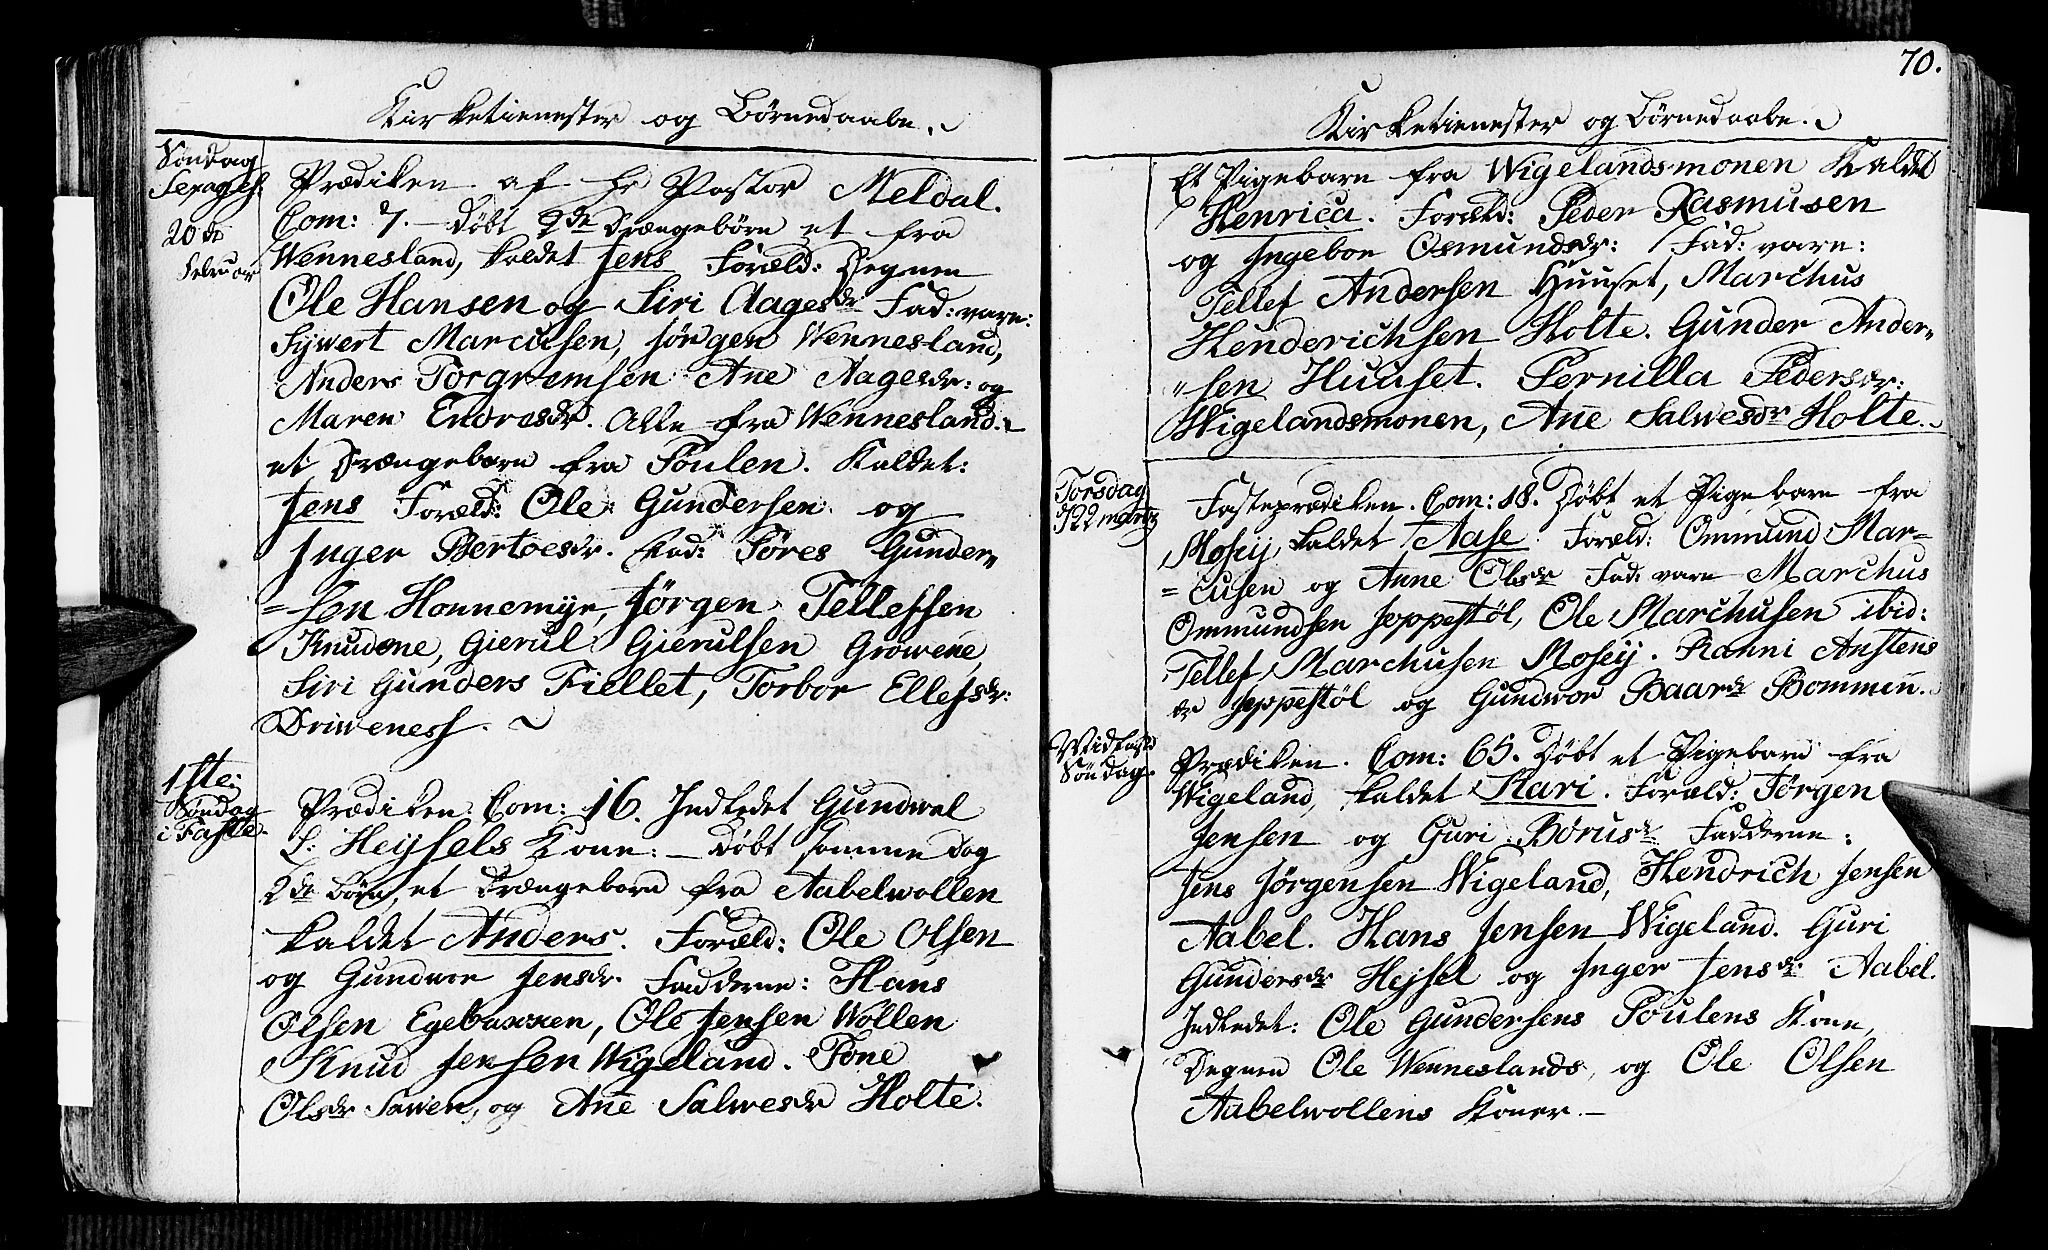 Kirketienester og Børnedaabe.
Søndag
Sexages:
20de
Februar
Prædiken af Hr Pastor Meldal.
Com: 7. – døbt 2de Drængebørn et fra
Wennesland, kaldet Jens Foræld: Degnen
Ole Hansen og Siri Aagesdr Fad: vare:
Sywert Marcusen, Jørgen Wennesland,
Anders Torgrimsen Ane Aagesdr: og
Maren Endresdr. Alle fra Wennesland. –
et Drængebarn fra Poulen. Kaldet:
Jens Foræld: Ole Gundersen og
Inger Bertoesdr. Fad: Søres Gunder„
=sen Honnemyr, Jørgen Tellefsen
Knudene, Gierul Gierulsen Growene,
Siri Gunders Fiellet, Torbor Ellefsdr:
Driweness.
1ste:
Søndag
i Faste.
Prædiken Com: 16. Indledet Gundwal
L: Heysels Kone: – døbt samme Dag
2de Børn, et Drængebarn fra Aabelwollen
kaldet Anders. Foræld: Ole Olsen
og Gundwor Jensdr. Fadderne: Hans
Olsen Egebakken, Ole Jensen Wollen
Knud Jensen Wigeland. Tone
Olsdr Sawen, og Ane Salwesdr Holte.
70.
Kirketienester og Børnedaabe.
Et Pigebarn fra Wigelandsmonen Kaldet
Henrica. Foræld: Peder Rasmusen
og Ingebor Osmundsdr: Fad: vare:
Tellef Andersen Huuset, Marchus
Henderichsen Holte. Gunder Ander„
„sen Huuset. Pernilla Pedersdr:
Wigelandsmonen, Ane Salwesdr Holte.
Torsdag
d 22 martz
Fasteprædiken. Com: 18. Døbt et Pigebarn fra
Mosey kaldet Aase. Foræld: Ommund Mar=
=cusen og Anne Olsdr Fad: vare Marchus
Ommundsen Jeppestøl, Ole Marchusen ibid:
Tellef Marchusen Mosey. Ranni Anstens
dr Jeppestøl og Gundwor Baardr Bommen.
Midfaste
Søndag.
Prædiken. Com: 65. Døbt et Pigebarn fra
Wigeland, kaldet Kari. Foræld: Jørgen
Jensen og Guri Børusdr Fadderne:
Jens Jørgensen Wigeland, Hendrich Jensen
Aabel. Hans Jensen Wigeland. Guri
Gundersdr Hejsel og Inger Jensdr: Aabel.
Indledet: Ole Gundersens Poulens Kone,
Degnen Ole Wenneslands, og Ole Olsen
Aabelwollens Koner. –